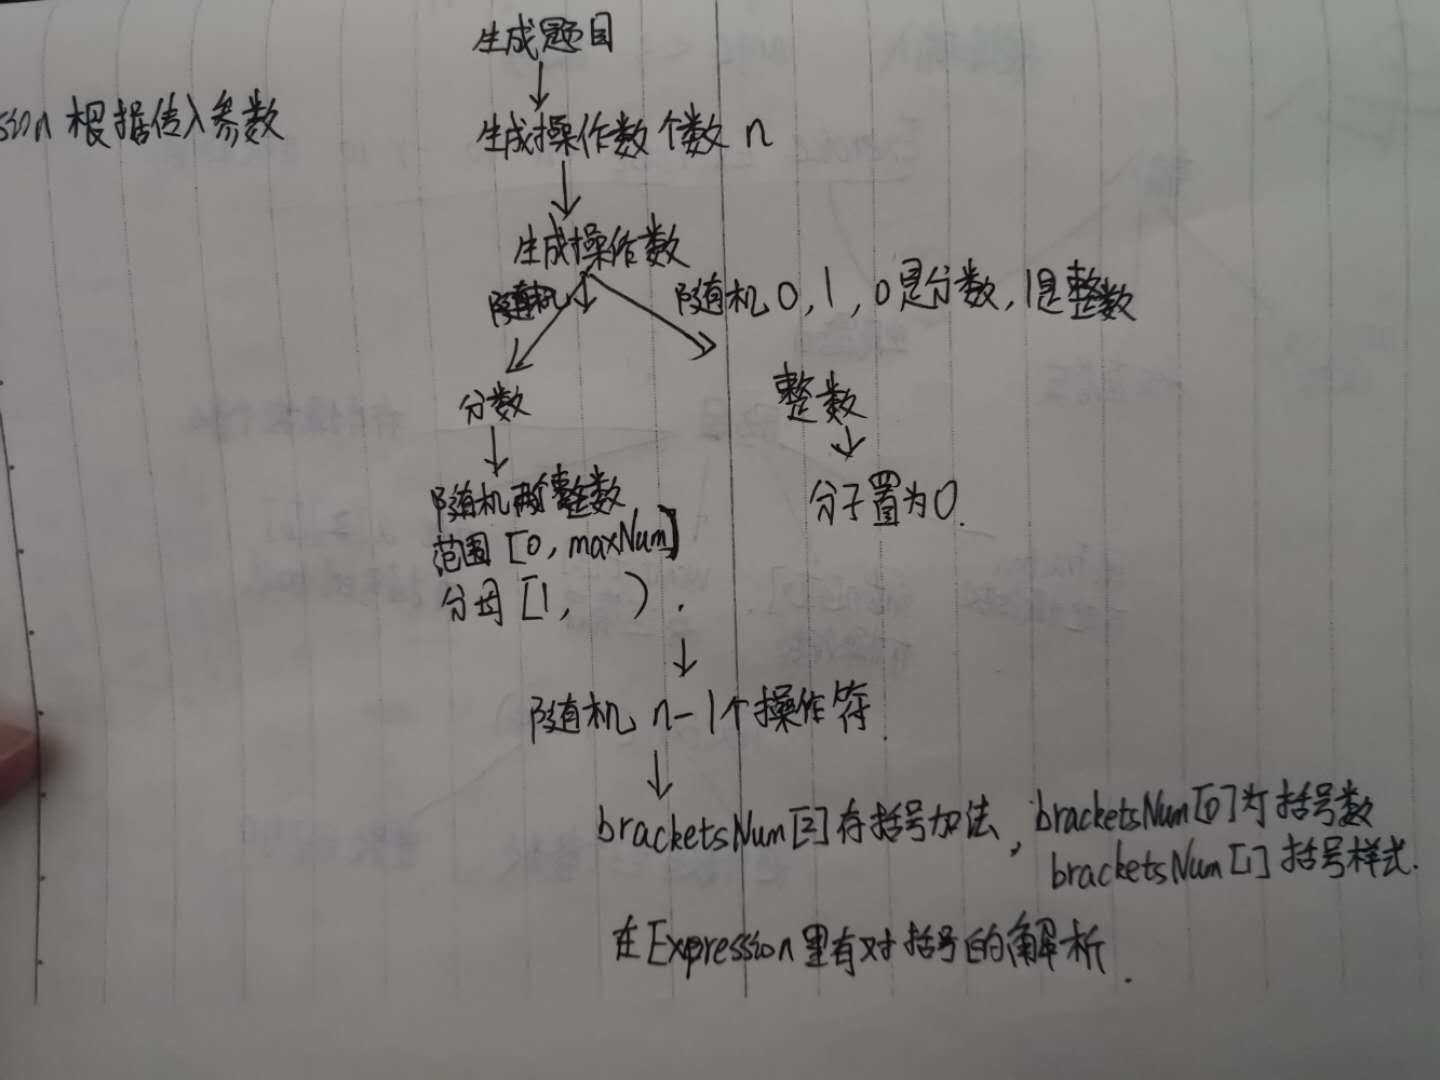 生成题目
ssion 根据传入参数
生成操作数个数 n
生成操作数
随机
随机 0,1,0是分数,1是整数
分数
整数
随机两个整数
范围 [0, maxNum]
分母 [1, ).
分子置为0.
随机 n-1个操作符.
bracketsNum[2]存括号加法, bracketsNum[0]为括号数
bracketsNum[1]括号样式.
在Expression里有对括号的解析.